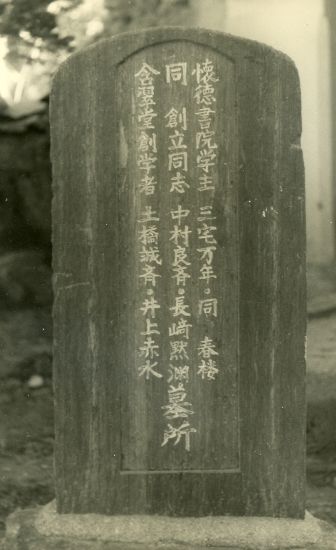 懐徳書院学主 三宅万年・同 春楼
同 創立同志 中村良斉・長崎黙渊墓所
含翠堂創学者 土橋誠斉・井上赤水